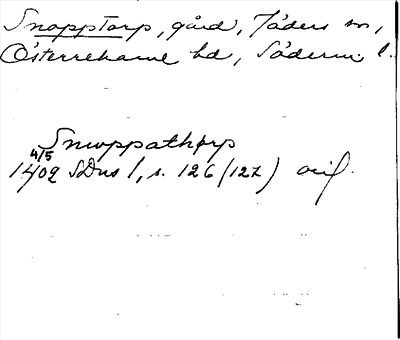 Snopptorp, gård, Jäders sn,
Österrekarne hd, Söderm. l.
Snwppathorp
4/5
1402 SDns 1, s. 126 (127) orig.